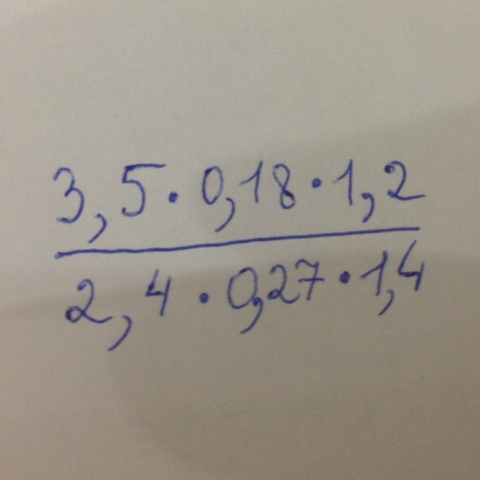 3,5 · 0,18 · 1,2
2,4 · 0,27 · 1,4